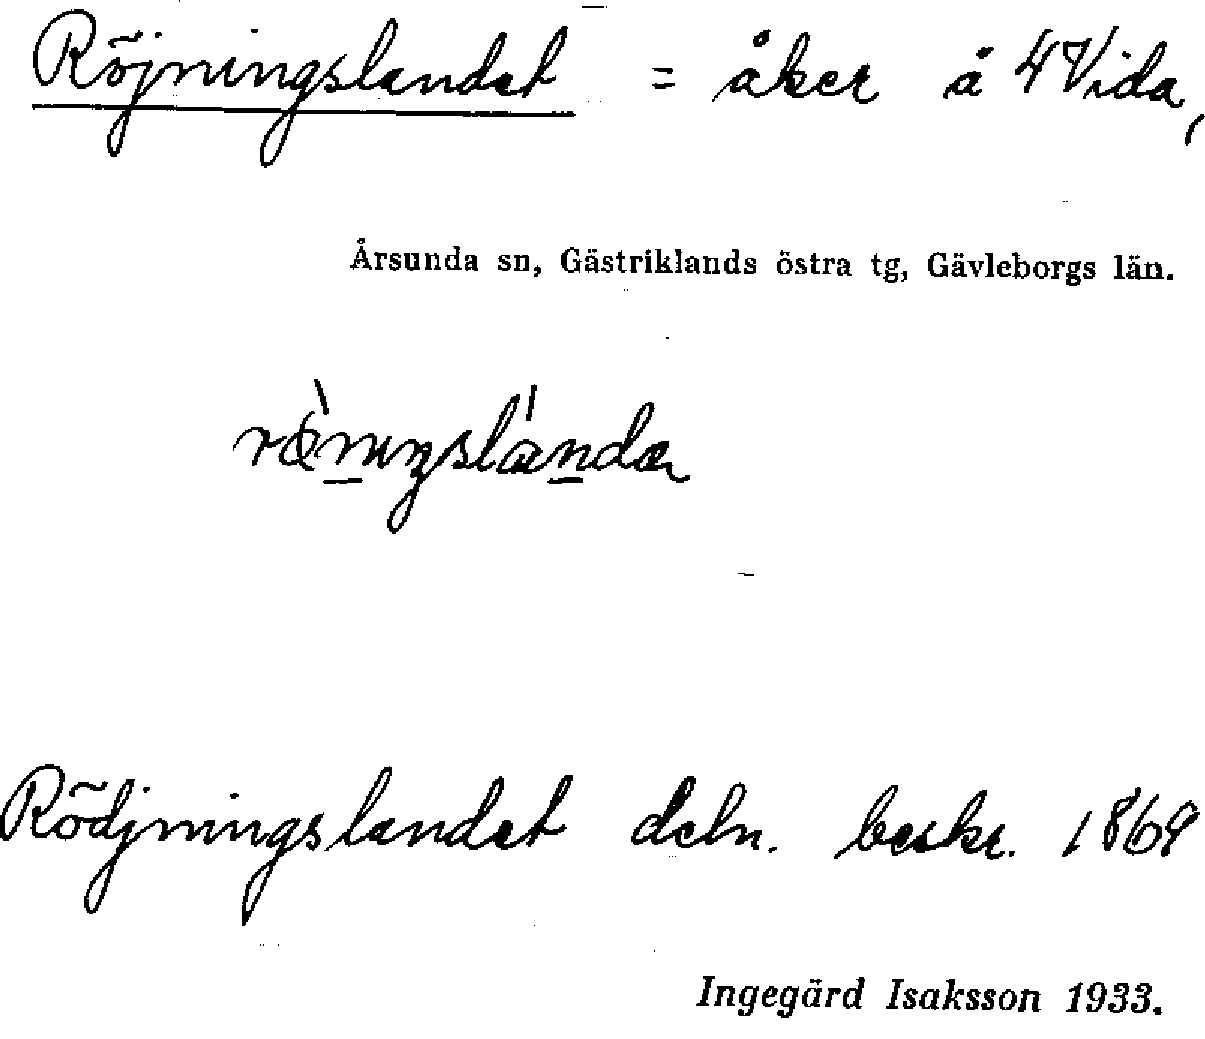 Röjningslandet = åker å 4 Vida,
Årsunda sn, Gästriklands östra tg, Gävleborgs län.
Rödjningslandet deln. beskr. 1869
Ingegärd Isaksson 1933.